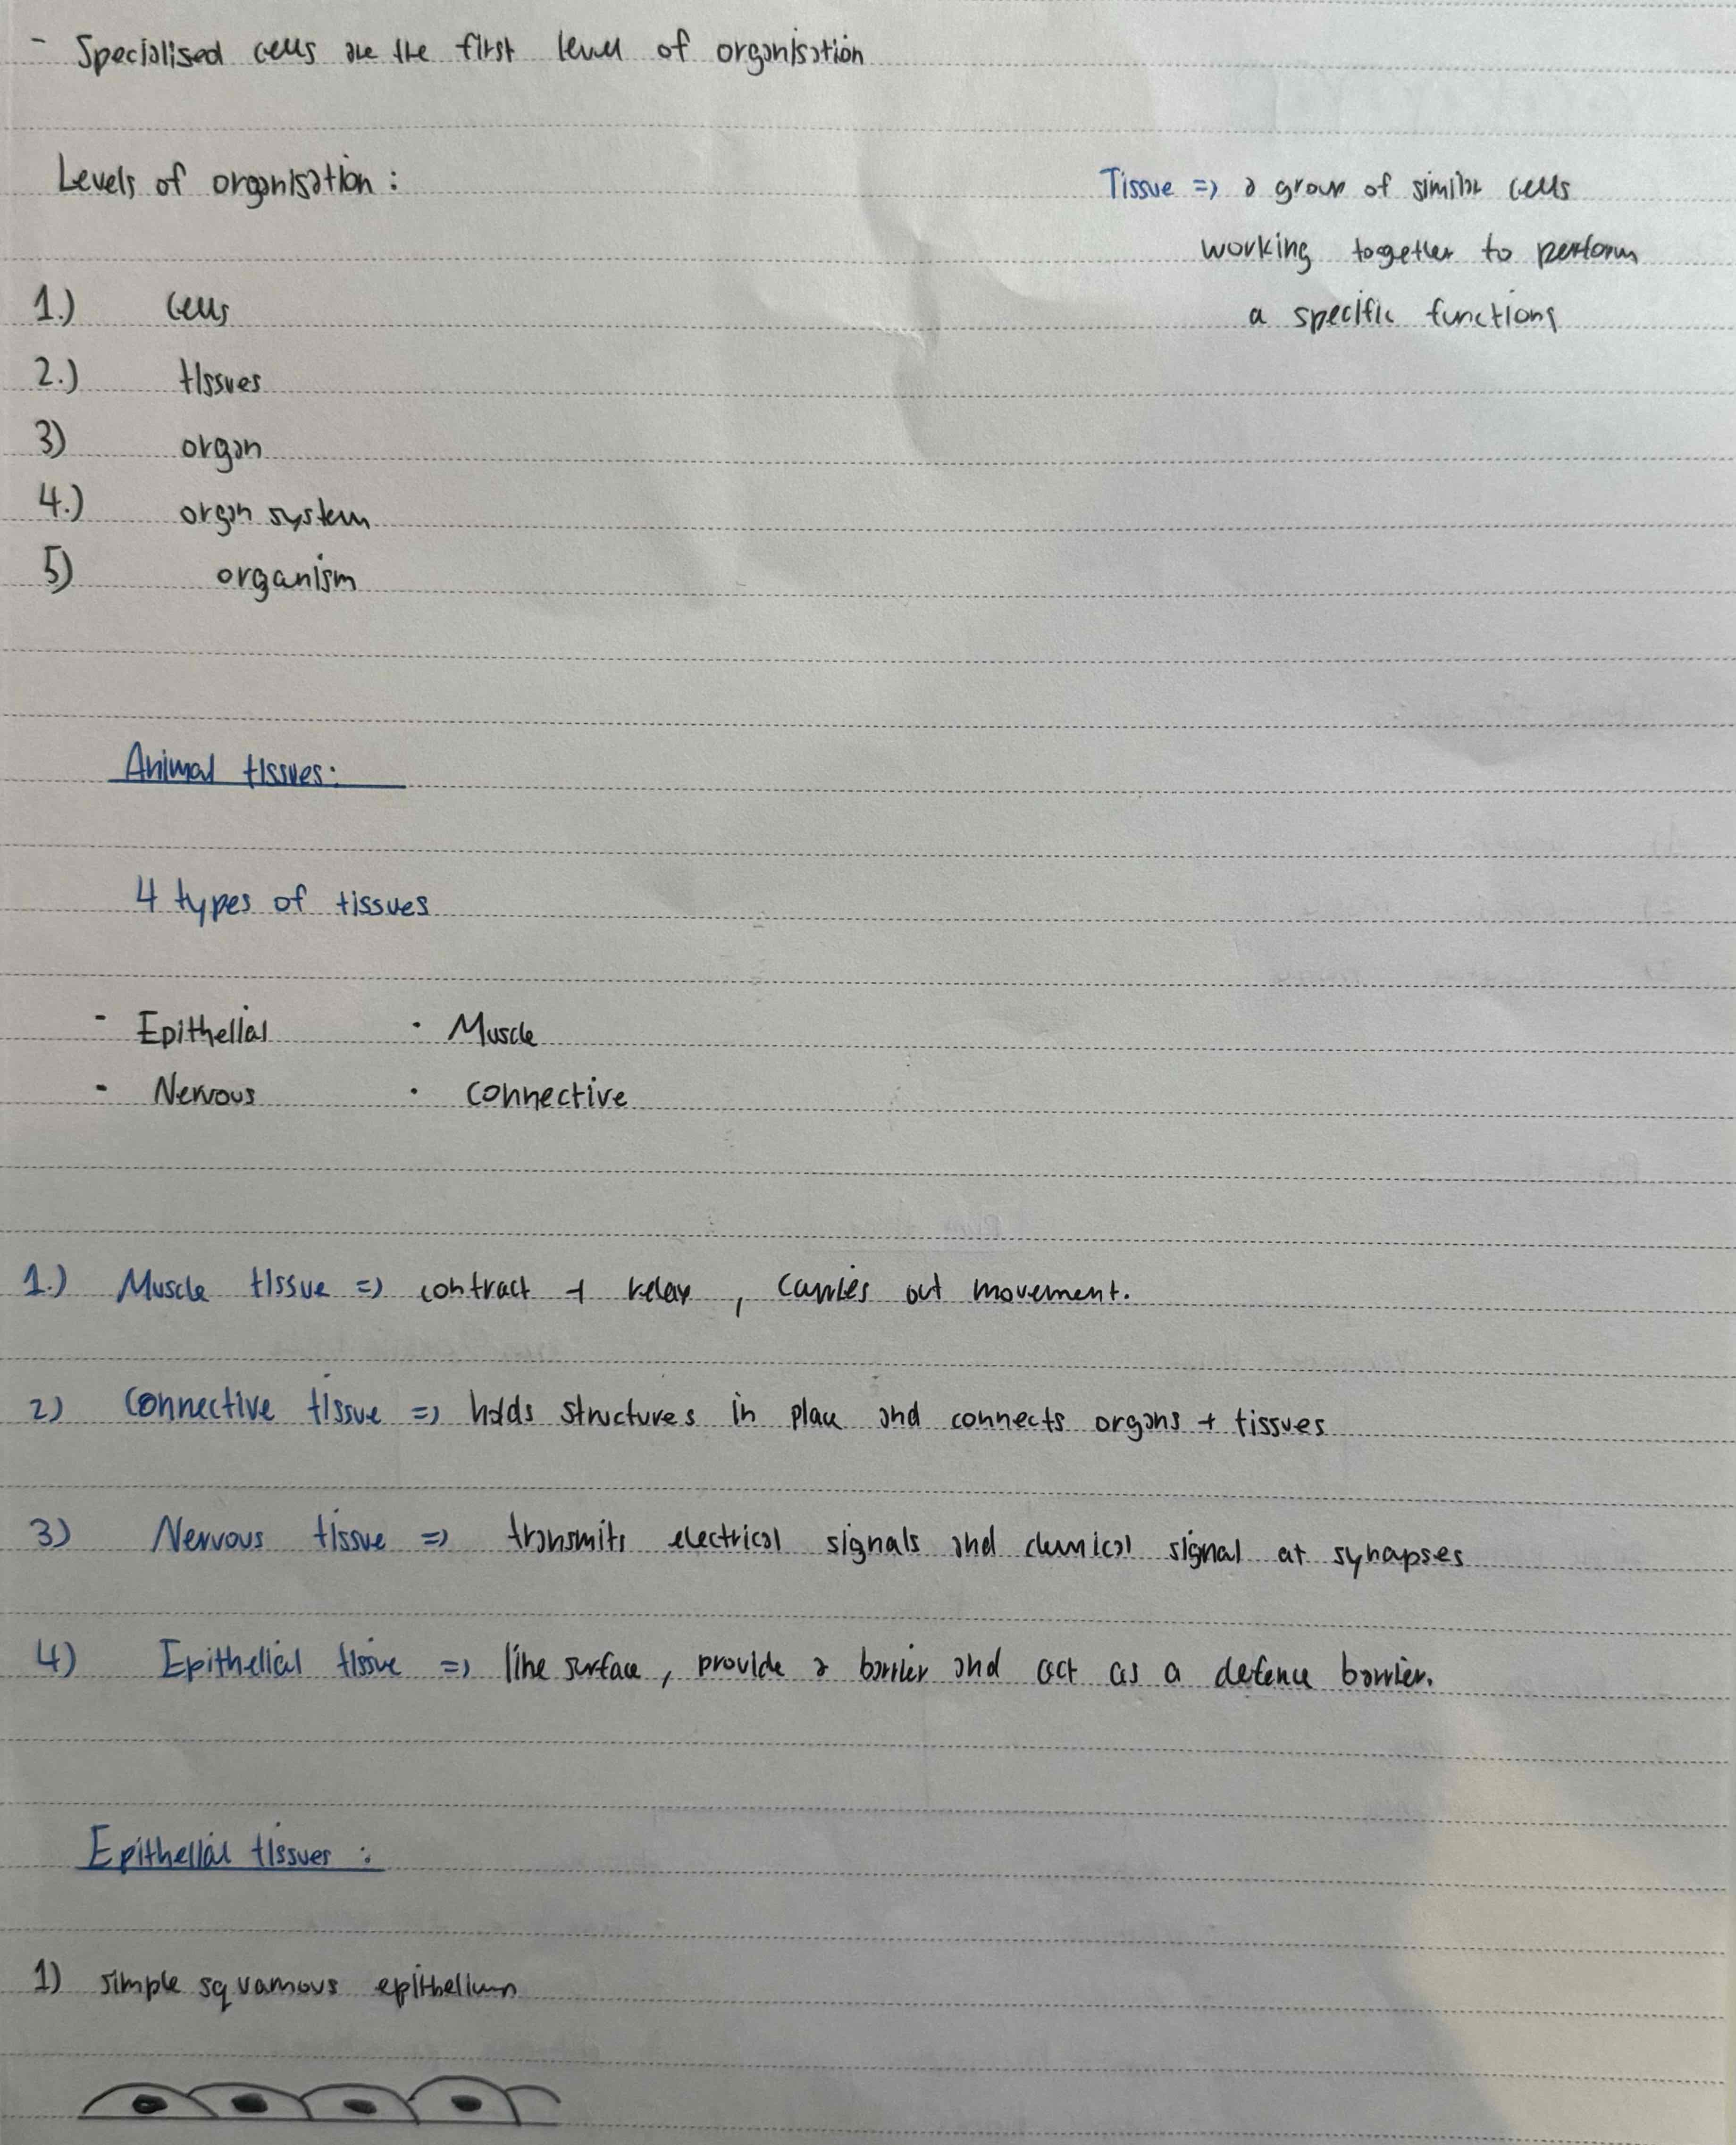 - Specialised cells are the first level of organisation
Levels of organisation :
Tissue => a group of similar cells
working together to perform
a specific functions
1.) cells
2.) tissues
3) organ
4.) organ system
5) organism
Animal tissues:
4 types of tissues
- Epithelial · Muscle
- Nervous · connective
1.) Muscle tissue => contract + relax , carries out movement.
2) Connective tissue => holds structures in place and connects organs + tissues
3) Nervous tissue => transmits electrical signals and chemical signal at synapses
4) Epithelial tissue => line surface , provide a barrier and act as a defence barrier.
Epithelial tissues :
1) simple squamous epithelium